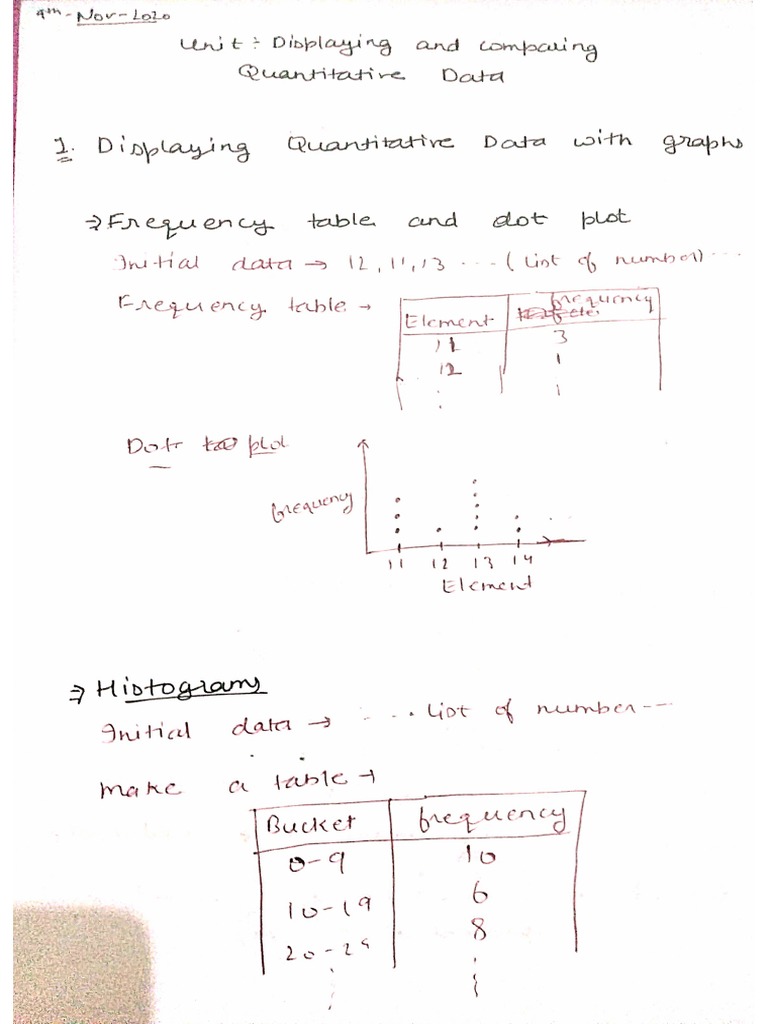 9th-Nov-2020
Unit :- Displaying and comparing
Quantitative Data
1. Displaying Quantitative Data with graphs
⇒ Frequency table and dot plot
Initial data → 12, 11, 13 ... (list of number) ...
Frequency table →
Element frequency
11 3
12 1
Dot plot
frequency
11 12 13 14
Element
⇒ Histograms
Initial data → .... list of number ---
make a table →
Bucket frequency
0-9 10
10-19 6
20-29 8